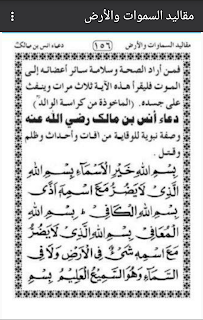 مقاليد السموات والأرض
مقاليد السماوات والأرض ١٥٦ دعاء انس بن مالك
فمن أراد الصحة وسلامة سائر أعضائه إلى
الموت فليقرأ هذه الآية ثلاث مرات وينفث
على جسده. (المأخوذة من كراسة الوالد)
دعاء أنس بن مالك رضي الله عنه
وصفة نبوية للوقاية من آفات وأحداث وظلم
وقتل
بِسْمِ اللهِ خَيْرِ الْأَسْمَاءِ بِسْمِ اللهِ
الَّذِيْ لَا يَضُرُّ مَعَ اسْمِهِ أَذًى
بِسْمِ اللهِ الْكَافِيْ بِسْمِ اللهِ
الْمُعَافِيْ بِسْمِ اللهِ الَّذِيْ لَا يَضُرُّ
مَعَ اسْمِهِ شَيْءٌ فِي الْأَرْضِ وَلَا فِي
السَّمَاءِ وَهُوَ السَّمِيْعُ الْعَلِيْمُ بِسْمِ